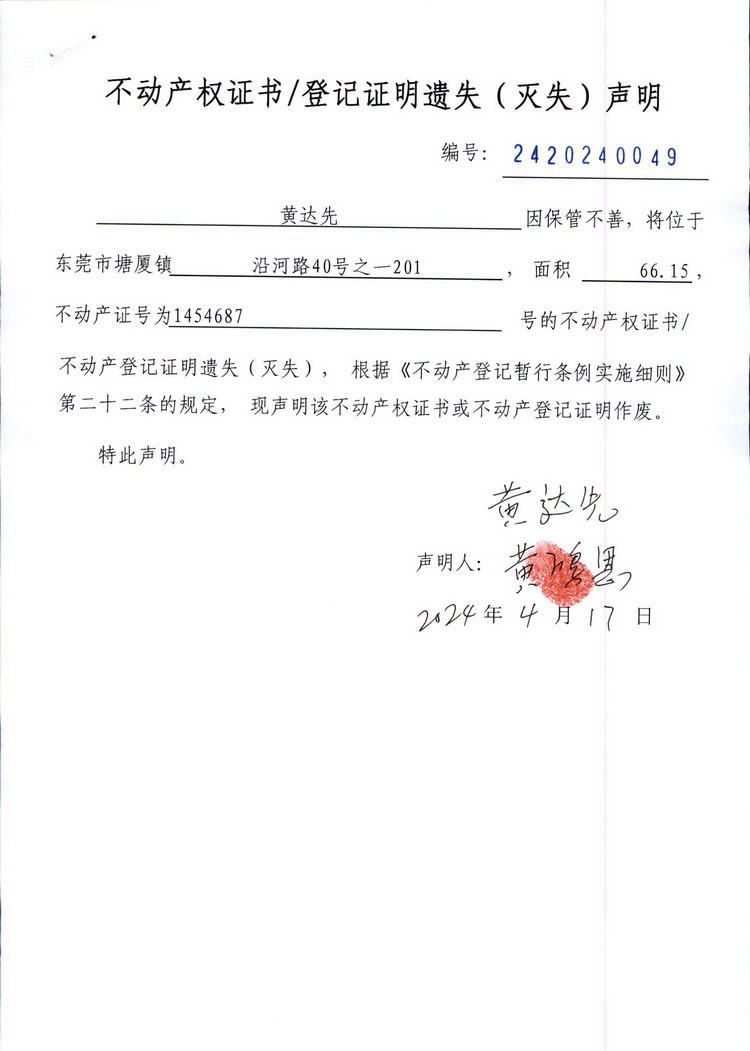 不动产权证书/登记证明遗失（灭失）声明
编号： 2420240049
黄达先 因保管不善，将位于
东莞市塘厦镇 沿河路40号之一201 ， 面积 66.15 ，
不动产证号为1454687 号的不动产权证书/
不动产登记证明遗失（灭失）， 根据《不动产登记暂行条例实施细则》
第二十二条的规定， 现声明该不动产权证书或不动产登记证明作废。
特此声明。
黄达先
声明人： 黄
2024 年 4 月 17 日